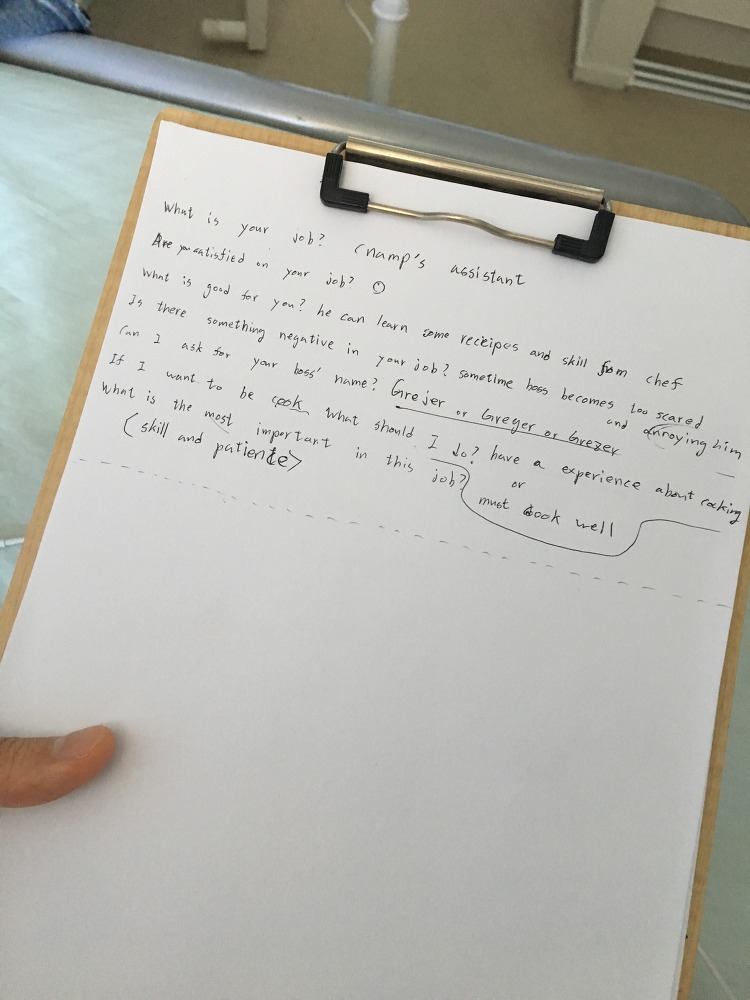 What is your job? Cnamp's assistant
Are you satisfied on your job? O
What is good for you? he can learn some receipes and skill from chef
Is there something negative in your job? sometime boss becomes too scared
and annoying him
Can I ask for your boss' name? Grejer or Greyer or Grezer
If I want to be cook what should I do? have a experience about cocking
or
must cook well
What is the most important in this job?
(skill and patience)